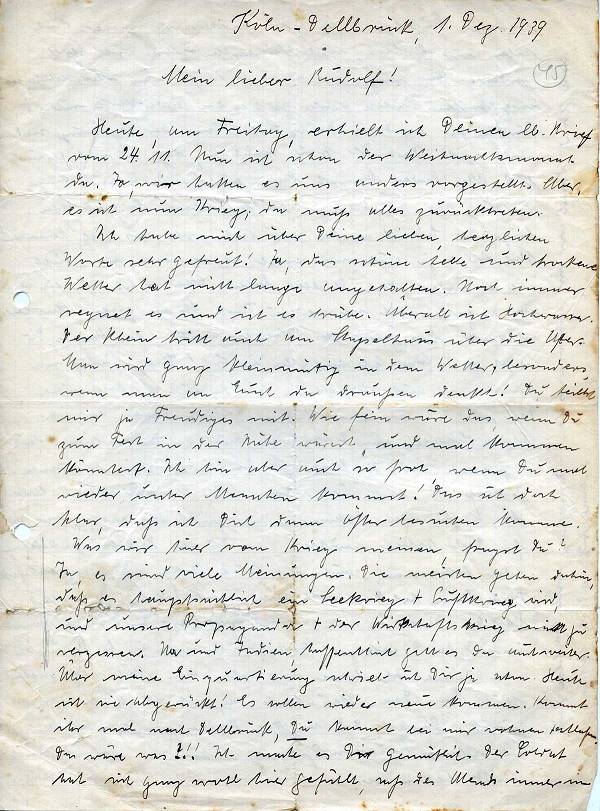 Köln-Dellbrück, 1. Dez. 1939
45
Mein lieber Rudolf!
Heute, am Freitag, erhielt ich Deinen lb. Brief
vom 24. 11. Nun ist schon der Weihnachtsmonat
da. Ja, wir hatten es uns anders vorgestellt. Aber,
es ist nun Krieg, da muß alles zurücktreten.
Ich habe mich über Deine lieben, herzlichen
Worte sehr gefreut! Ja, das schöne helle und trockene
Wetter hat nicht lange angehalten. Noch immer
regnet es und ist es trübe. Überall ist Hochwasser.
Der Rhein tritt auch am Stapelhaus über die Ufer.
Man wird ganz kleinmütig in dem Wetter, besonders
wenn man an Euch da draußen denkt! Du teilst
mir ja Freudiges mit. Wie fein wäre das, wenn Du
zum Fest in der Nähe wärest, und mal kommen
könntest. Ich bin aber auch so froh, wenn Du mal
wieder unter Menschen kommst! Das ist doch
klar, daß ich Dich dann öfter besuchen komme.
Was wir hier vom Krieg meinen, fragst Du?
Ja, es sind viele Meinungen. Die meisten gehen dahin,
daß es hauptsächlich ein Seekrieg + Luftkrieg wird,
und unsere Propaganda + der Wirtschaftskrieg nicht zu
vergessen. Na und Indien, hoffentlich geht es da auch weiter.
Über meine Einquartierung schrieb ich Dir ja schon. Heute
ist sie abgerückt! Es sollen wieder neue kommen. Kommt
ihr mal nach Dellbrück, Du kannst bei mir wohnen + schlafen.
Das wäre was?!! Ich mache es Dir gemütlich. Der Soldat
hat sich ganz wohl hier gefühlt, saß des Abends immer in